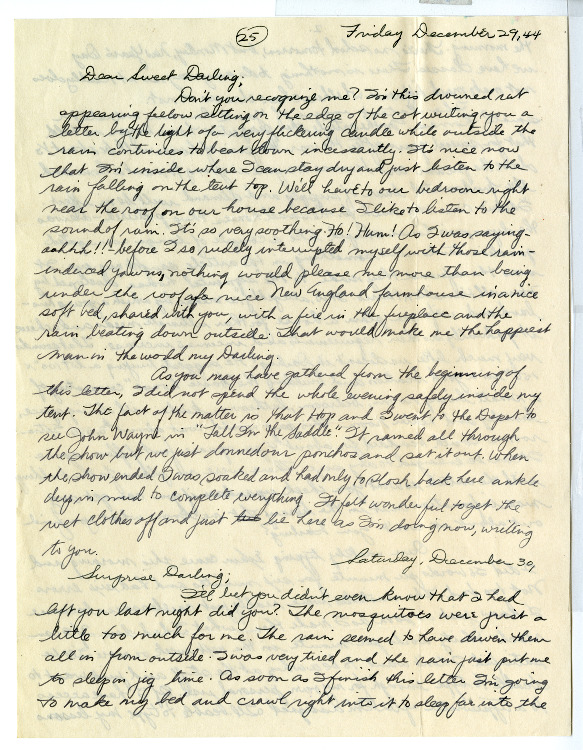 25
Friday December 29, 44
Dear Sweet Darling;
Don't you recognize me? I'm this drowned rat
appearing fellow sitting on the edge of the cot writing you a
letter by the light of a very flickering candle while outside the
rain continues to beat down incessantly. It's nice now
that I'm inside where I can stay dry and just listen to the
rain falling on the tent top. We'll have to our bedroom right
near the roof on our house because I like to listen to the
sound of rain. It's so very soothing. Ho! Hum! As I was saying-
aahhh!!! before I so rudely interrupted myself with those rain-
induced yawns, nothing would please me more than being
under the roof of a nice New England farmhouse in a nice
soft bed, shared with you, with a fire in the fireplace and the
rain beating down outside. That would make me the happiest
man in the world my Darling.
As you may have gathered from the beginning of
this letter, I did not spend the whole evening safely inside my
tent. The fact of the matter is that Hop and I went to the Depot to
see John Wayne in "Tall In The Saddle". It rained all through
the show but we just donned our ponchos and sat it out. When
the show ended I was soaked and had only to slosh back here ankle
deep in mud to complete everything. It felt wonderful to get the
wet clothes off and just lie here as I'm doing now, writing
to you.
Saturday, December 30,
Surprise Darling;
I'll bet you didn't even know that I had
left you last night did you? The mosquitoes were just a
little too much for me. The rain seemed to have driven them
all in from outside. I was very tired and the rain just put me
to sleep in jig time. As soon as I finish this letter I'm going
to make my bed and crawl right into it to sleep far into the